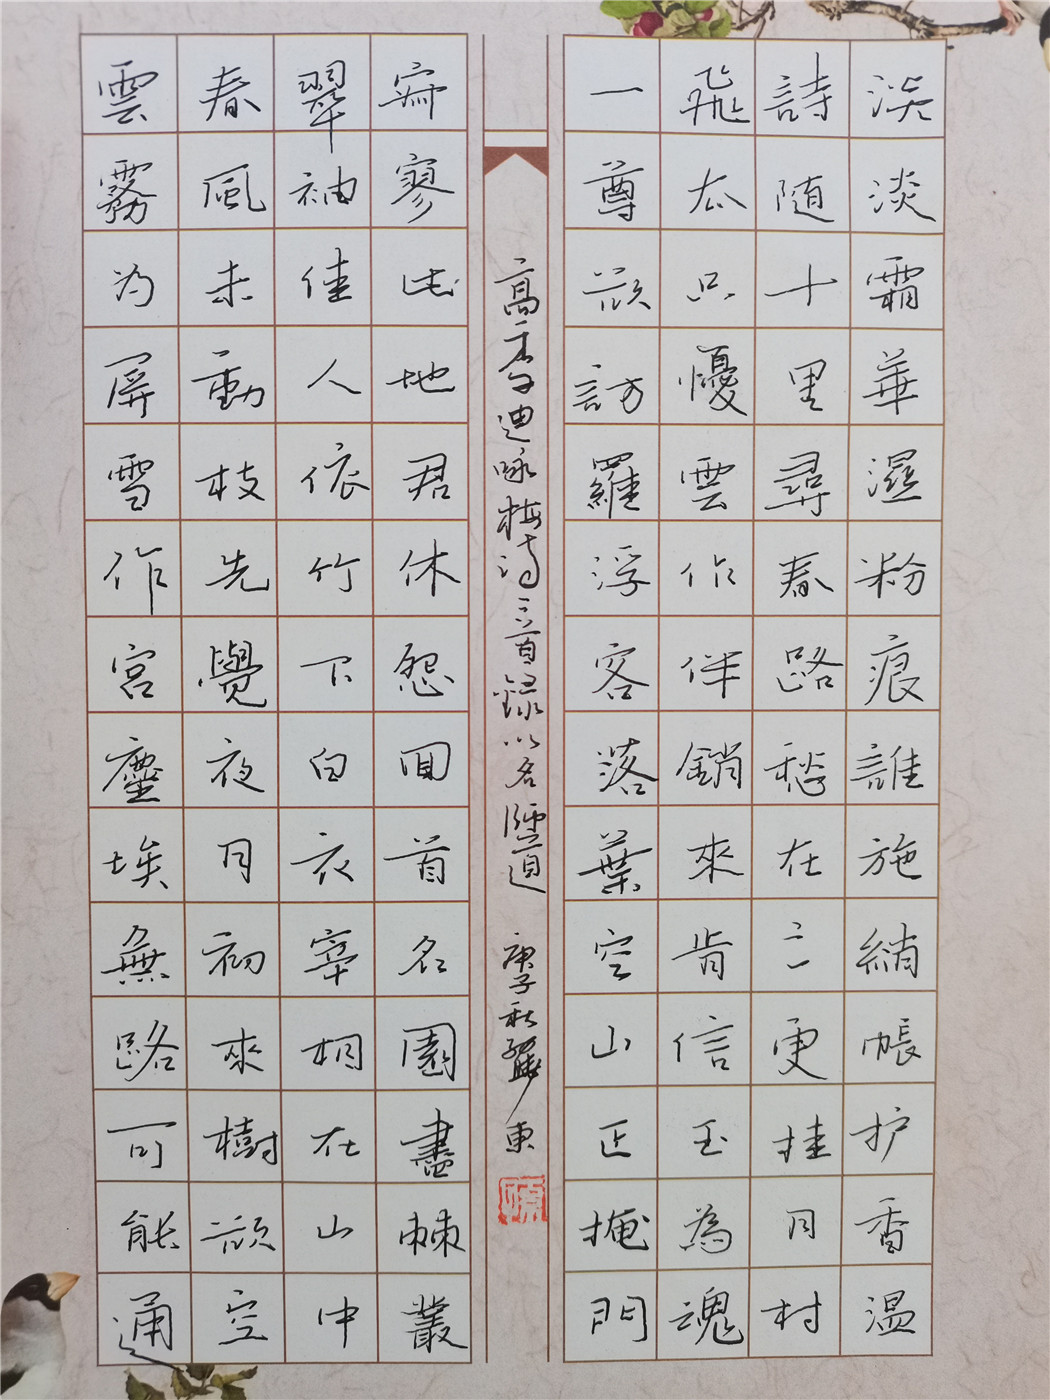 淡淡霜華濕粉痕誰施綃帳护香温
詩随十里尋春路愁在三更挂月村
飛去只憂雲作伴銷來肯信玉為魂
一尊欲訪羅浮客落葉空山正掩門
雲霧为屏雪作宫塵埃無路可能通
春風未動枝先覺夜月初來樹欲空
翠袖佳人依竹下白衣宰相在山中
寂寥此地君休怨回首名園盡棘叢
高季迪咏梅诗三首録以名道 庚子秋東